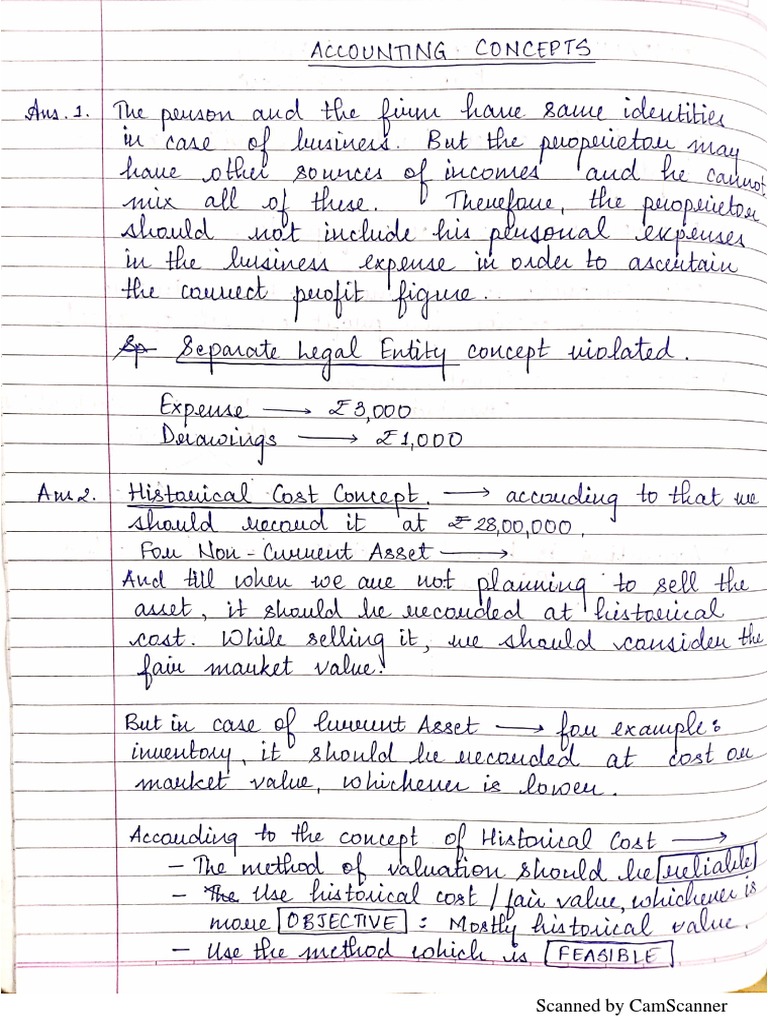 ACCOUNTING CONCEPTS
Ans. 1. The person and the firm have same identities
in case of business. But the properietor may
have other sources of incomes and he cannot
mix all of these. Therefore, the properietor
should not include his personal expenses
in the business expense in order to ascertain
the correct profit figure.
Sp Separate Legal Entity concept violated.
Expense → ₹3,000
Drawings → ₹1,000
Ans 2. Historical Cost Concept. → according to that we
should record it at ₹28,00,000.
For Non-Current Asset →
And till when we are not planning to sell the
asset, it should be recorded at historical
cost. While selling it, we should consider the
fair market value.
But in case of Current Asset → for example:
inventory, it should be recorded at cost or
market value, whichever is lower.
According to the concept of Historical Cost →
- The method of valuation should be reliable
- The Use historical cost / fair value, whichever is
more OBJECTIVE : Mostly historical value.
- Use the method which is FEASIBLE
Scanned by CamScanner